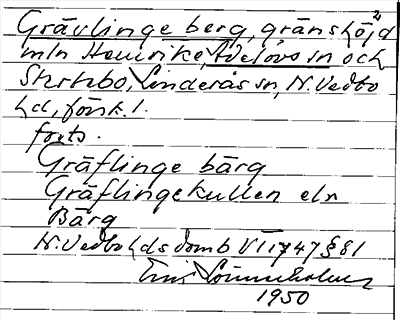 Grävlinge berg, gränshöjd 2
mln Henrike, Adelövs sn och
Skrukebo, Linderås sn, N. Vedbo
hd, förk. 1.
forts.
Gräflinge bärg
Gräflingekullen elr
Bärg
N. Vedbo hds domb VII 1747 § 81
1950